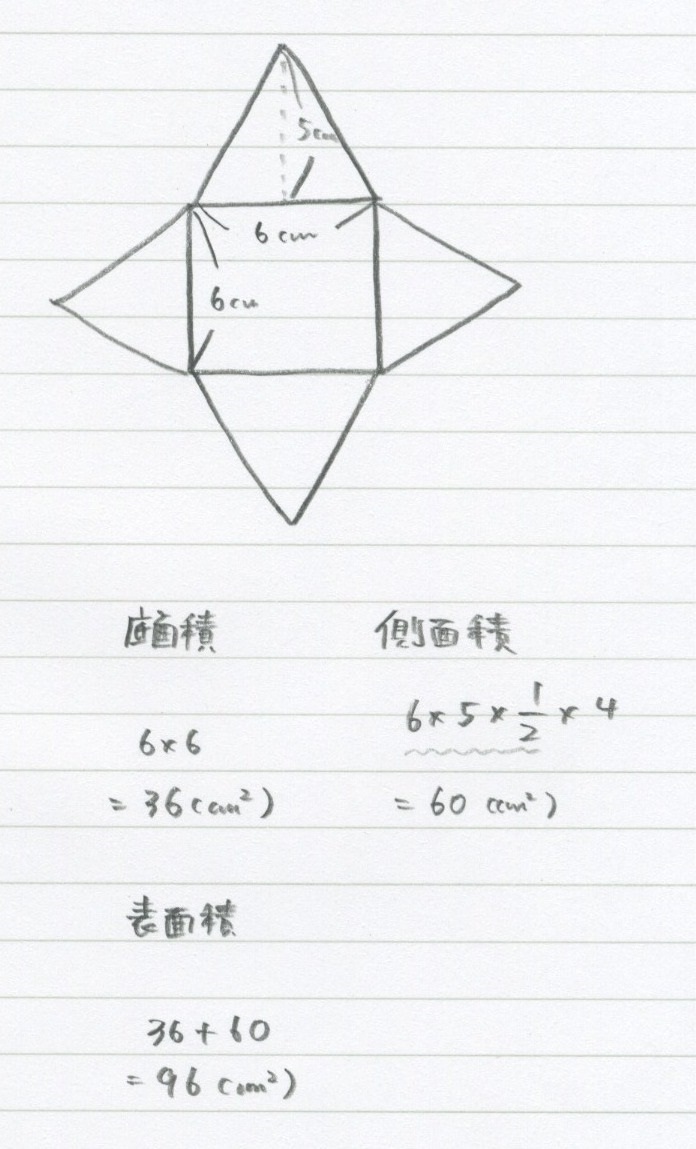 5cm
6cm
6cm
底面積
6×6
=36(cm²)
側面積
6×5×1/2×4
=60(cm²)
表面積
36+60
=96(cm²)